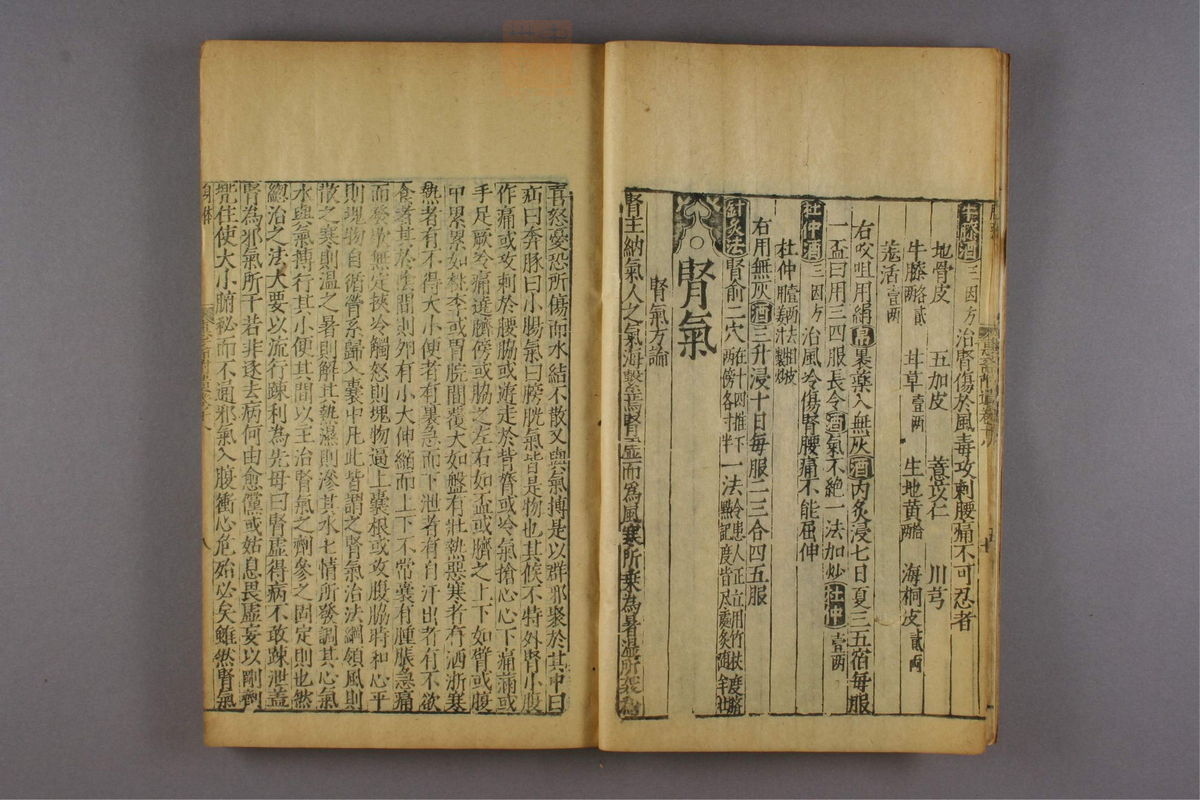 牛膝酒 三因方 治腎傷於風毒攻刺腰痛不可忍者
地骨皮 五加皮 薏苡仁 川芎
牛膝 甘草壹兩 生地黄 海桐皮貳兩
羗活壹兩
右㕮咀用絹帛裹藥入無灰酒内炙浸七日夏三五宿每服
一盃日用三四服長令酒氣不絶一法加炒杜仲壹兩
杜仲酒 三因方 治風冷傷腎腰痛不能屈伸
杜仲
右用無灰酒三升浸十日每服二三合四五服
針灸法 腎俞二穴 在十四椎下兩傍各寸半 一法 令患人正立用竹杖度
腎氣
腎氣方論
腎主納氣人之氣海繫焉腎虛而為風寒所乗為暑濕所
喜怒憂恐所傷而水結不散又與氣搏是以群邪聚於其中曰
疝曰奔豚曰小腸氣曰膀胱氣皆是物也其候不特外腎小腹
作痛或攻刺於腰脇或遊走於背膂或冷氣搶心心下痛滿或
手足厥冷痛遶臍傍或脇之左右如盃或臍之上下如臂或腹
中累累如桃李或胃脘間覆大如盤有壯熱惡寒者有洒淅寒
熱者有不得大小便者有裏急而下泄者有自汗出者有不欲
食者其於陰間則夘有小大伸縮而上下不常囊有腫脹急痛
而發歇無定挾冷觸怒則塊物逼上囊根或攻腹脇時和心平
則塊物自循循系歸入囊中凡此皆謂之腎氣治法綱領風則
散之寒則温之暑則解其熱濕則滲其水七情所發調其心氣
水與氣搏行其小便其間以主治腎氣之劑參之固定則也然
總治之法大要以流行疎利為先毋曰腎虛得病不敢疎泄盖
腎為邪氣所干若非逐去病何由愈儻或姑息畏虛妄以剛劑
兜住使大小腑祕而不通邪氣入腹衝心危殆必矣雖然腎氣